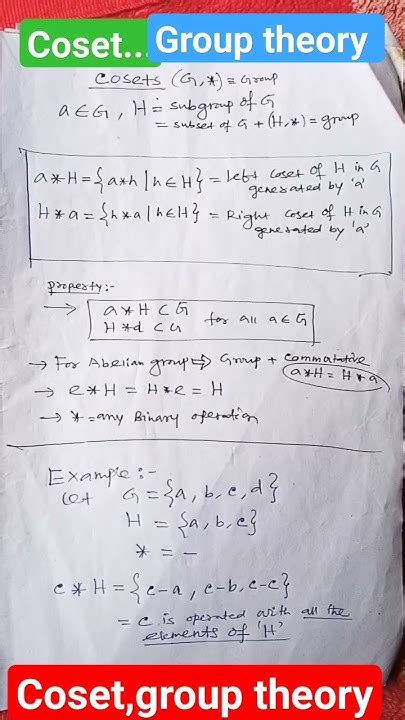 Coset...
Group theory
Cosets (G,*) = Group
a∈G, H = subgroup of G
= subset of G + (H,*) = group
a*H = {a*h | h∈H} = Left coset of H in G
generated by 'a'
H*a = {h*a | h∈H} = Right coset of H in G
generated by 'a'
property:-
→ a*H ⊂ G
H*d ⊂ G for all a∈G
→ For Abelian group ⇒ Group + commutative
a*H = H*a
→ e*H = H*e = H
→ * = any Binary operation
Example:-
Let G = {a, b, c, d}
H = {a, b, c}
* = -
c*H = {c-a, c-b, c-c}
= c is operated with all the
elements of 'H'
Coset,group theory